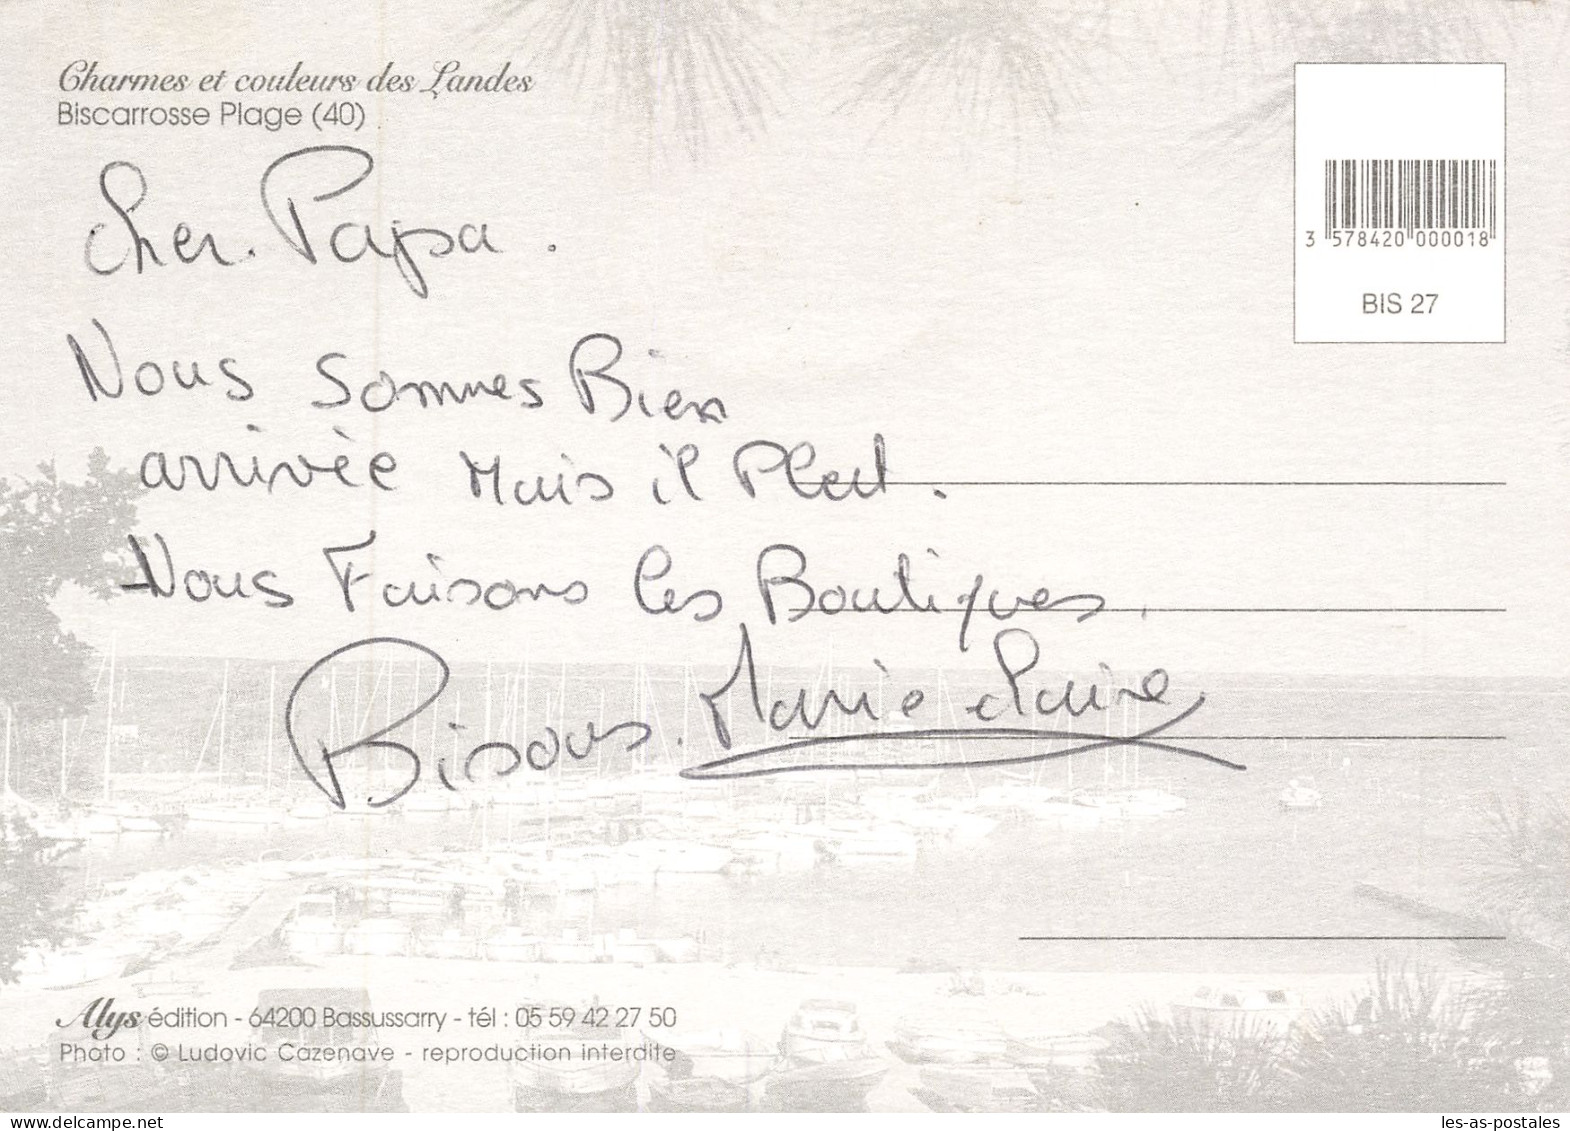 Charmes et couleurs des Landes
Biscarrosse Plage (40)
3 578420 000018
BIS 27
Cher Papa.
Nous sommes Bien
arrivée Mais il Pleut.
Nous Faisons les Boutiques.
Bisous. Marie claire
Alys édition - 64200 Bassussarry - tél : 05 59 42 27 50
Photo : © Ludovic Cazenave - reproduction interdite
delcampe.net
les-as-postales